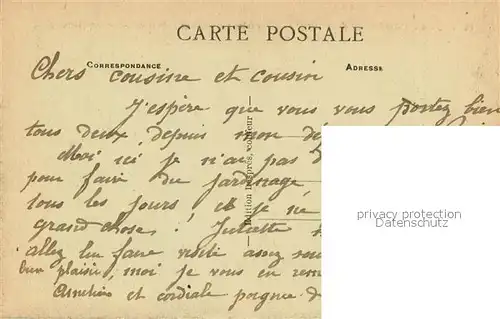 CARTE POSTALE
CORRESPONDANCE
ADRESSE
Chers cousine et cousin
J'espère que vous vous portez bien
tous deux depuis mon dé
Moi ici je n'ai pas d
pour faire du jardinage
tous les jours et je né
grand chose! Juliette
allez lui faire visite assez
bien plaisir, moi je vous en rem
Amitiés et cordiale poignée d
privacy protection
Datenschutz